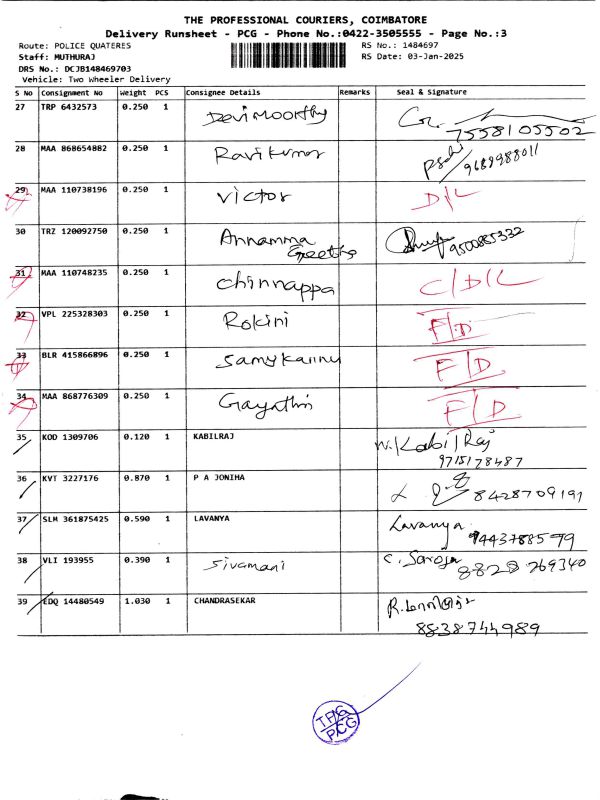 THE PROFESSIONAL COURIERS, COIMBATORE
Delivery Runsheet - PCG - Phone No.:0422-3505555 - Page No.:3
Route: POLICE QUATERES RS No.: 1484697
Staff: MUTHURAJ RS Date: 03-Jan-2025
DRS No.: DCJB148469703
Vehicle: Two Wheeler Delivery
S No Consignment No Weight PCS Consignee Details Remarks Seal & Signature
27 TRP 6432573 0.250 1 Devimoorthy
7558105502
28 MAA 868654882 0.250 1 Ravikumar 9689988011
29 MAA 110738196 0.250 1 Victor D/L
30 TRZ 120092750 0.250 1 Annamma 9500885332
Geetha
31 MAA 110748235 0.250 1 chinnappa C/D/L
32 VPL 225328303 0.250 1 Rokini F/D
33 BLR 415866896 0.250 1 Samykannu F/D
34 MAA 868776309 0.250 1 Gayathri F/D
35 KOD 1309706 0.120 1 KABILRAJ W. Kabil Raj
9715178487
36 KVT 3227176 0.870 1 P A JONIHA 8428709191
37 SLM 361875425 0.590 1 LAVANYA Lavanya
9443788599
38 VLI 193955 0.390 1 Sivamani C. Saroja
8828 269340
39 EDQ 14480549 1.030 1 CHANDRASEKAR
8838744989
TPC
PCG